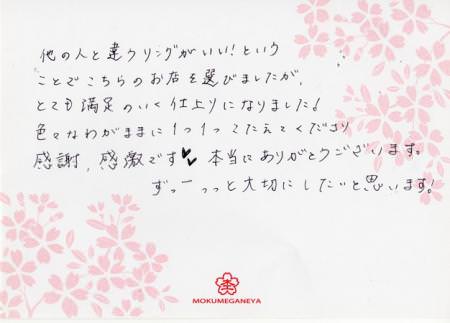 他の人と違うリングがいい!という
ことでこちらのお店を選びましたが、
とても満足のいく仕上りになりました!
色々なわがままに1つ1つこたえてくださり
感謝、感激です♥♥ 本当にありがとうございます。
ずっーっっと大切にしたいと思います!
MOKUMEGANEYA